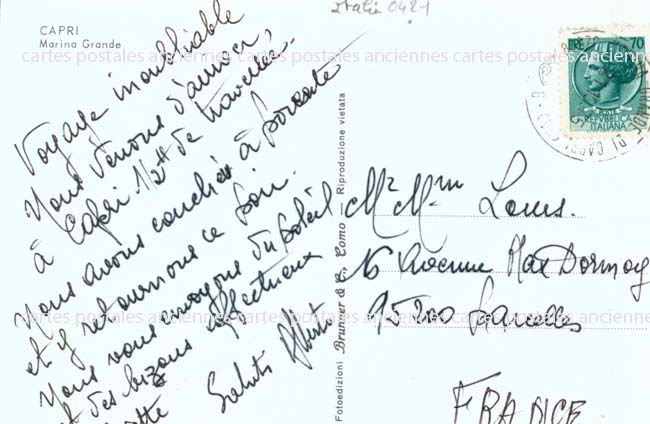 Italie 0421
CAPRI
Marina Grande
Voyage inoubliable
Nous venons d'arriver,
à Capri 1/2 H de traversée.
Nous avons couché à
et y retournons ce soir.
Nous vous envoyons du soleil
et des bizous affectueux
Saluti Alberto
Fotoedizioni Brunner & C., Como — Riproduzione vietata
LIRE 70
REPVBBLICA
ITALIANA
DI CAPRI
Mr Mme Louis.
16 Avenue Max Dormoy
95200 Sarcelles
FRANCE
cartes postales anciennes cartes postales anciennes cartes postales anciennes
cartes postales anciennes cartes postales anciennes cartes postales anciennes